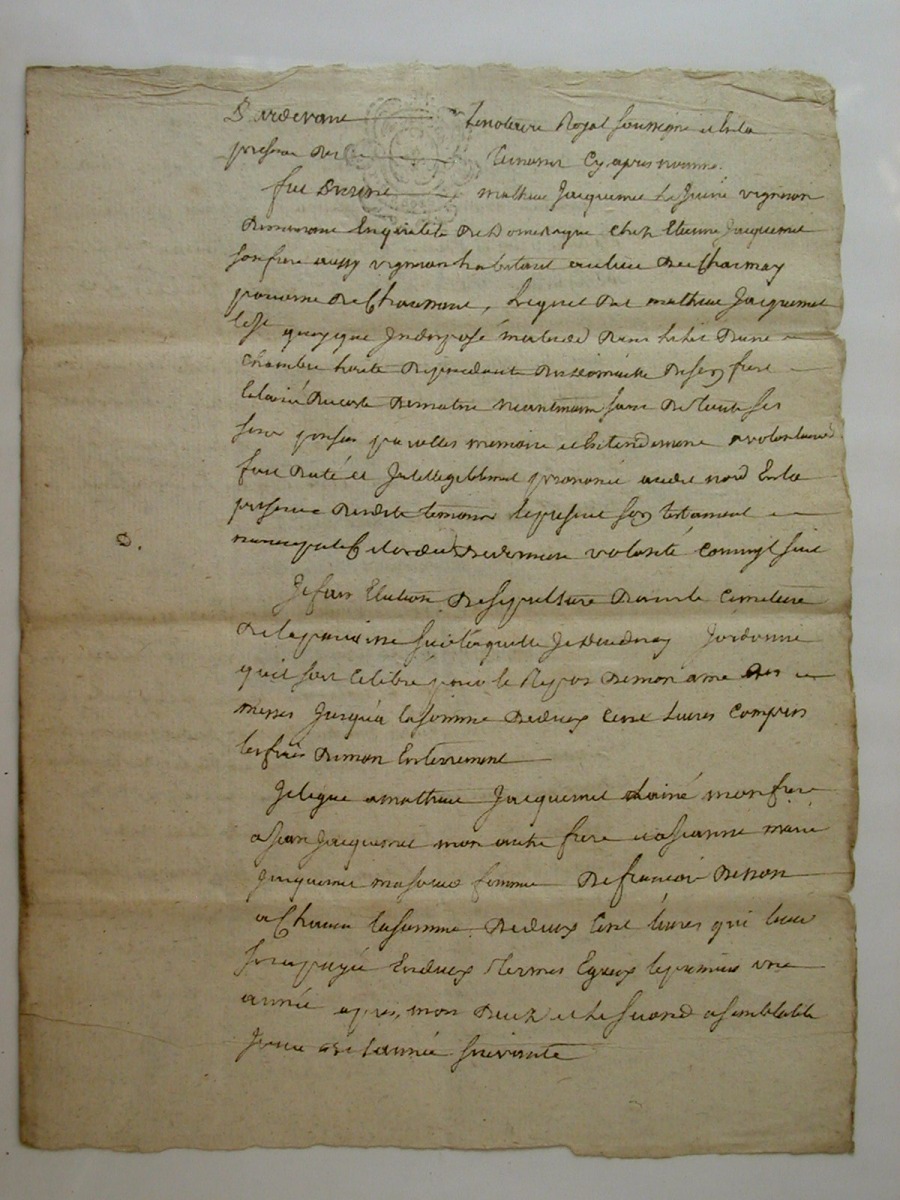 Pardevant le notaire Royal soussigné et En la
presence des temoins Cy apres nommé
fut present mathieu Jacquemet le Jeune vigneron
demeurant En qualité de Domestique Chez Etienne Jacquemet
son frere aussy vigneron habitant au lieu de Charnay
paroisse de , lequel dit mathieu Jacquemet
quoyque Indisposé malade dans le lit d'une
chambre haute dependante du domicille de son frere
neantmoins sain de toute ses
sens paroles memoire et Entendement a volontairement
fait dicté et Intelligiblement prononcé audit no.re En la
presence desdits temoins le present son testament
nuncupatif et ordre de derniere volonté comm'yl suit
Je fais Election de sepulture dans le Cimetiere
de la paroisse sur laquelle Je decederay J'ordonne
qu'il soit Celebré pour le Repos de mon ame des
messes Jusqu'à la somme de deux Cent Livres compris
les frais de mon Enterrement
Je legue a mathieu Jacquemet L'ainé mon frere
a Jean Jacquemet mon autre frere et a Jeanne marie
Jacquemet ma soeur femme de francois
a Chacun la somme de deux Cent livres qui leur
sera payée En deux Termes Egaux le premier une
année apres mon deces et le second a semblable
Jour de l'année suivante